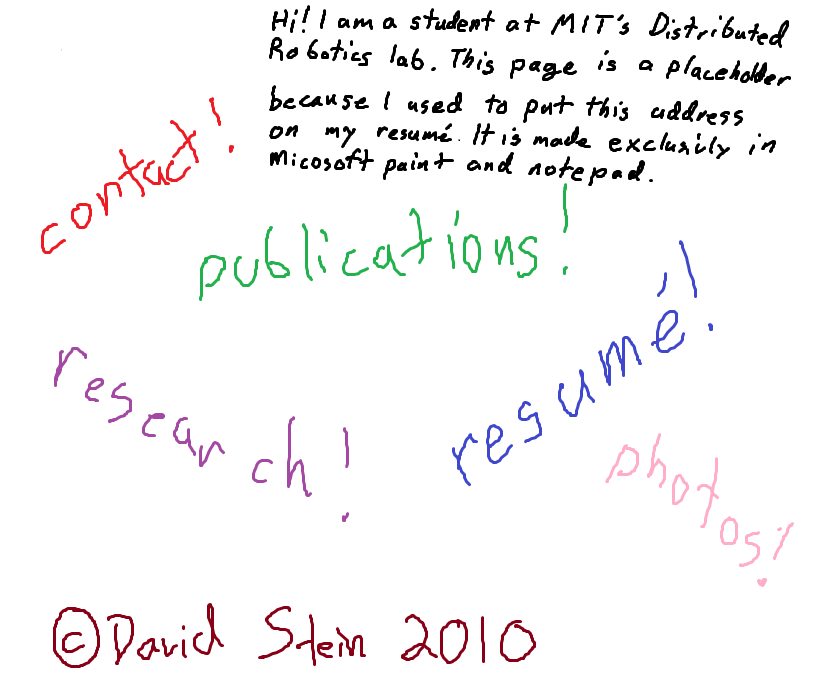 Hi! I am a student at MIT's Distributed
Robotics lab. This page is a placeholder
because I used to put this address
on my resumé. It is made exclusily in
Micosoft paint and notepad.
contact!
publications!
resumé!
research!
photos!
©David Stein 2010